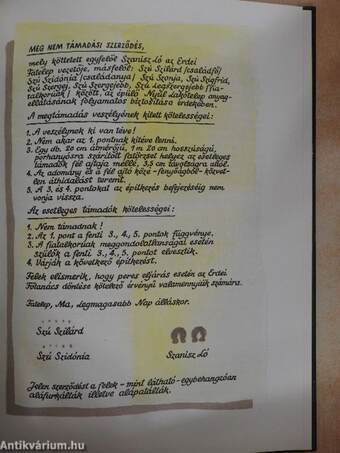 MEG NEM TÁMADÁSI SZERZŐDÉS,
mely köttetett egyfelől Szanisz Ló az Erdei
Fatelep vezetője, másfelől: Szú Szilárd /családfő/
Szú Szidónia /családanya/ Szú Szonja, Szú Szigfrid,
Szú Szergej, Szú Szergejebb, Szú Legszergejebb /fia-
talkorúak/ között, az épülő Nyúl lakótelep anyag-
ellátásának folyamatos biztosítása érdekében.
A megtámadás veszélyének kitett kötelességei:
1. A veszélynek ki van téve!
2. Nem akar az 1. pontnak kitéve lenni.
3. Egy db. 20 cm átmérőjű, 1 m 20 cm hosszúságú,
porhanyósra szárított fatörzset helyez az esetleges
támadók fél ajtaja mellé, 3,5 cm távolságra attól.
4. Az adomány és a fél ajtó közé - fenyőágból - közvet-
len áthidalást teremt.
5. A 3. és 4. pontokat az építkezés befejezéséig nem
vonja vissza.
Az esetleges támadók kötelességei:
1. Nem támadnak!
2. Az 1. pont a fenti 3., 4., 5. pontok függvénye,
3. A fiatalkorúak meggondolatlanságai esetén
szülők a fenti 3., 4., 5. pontot elvesztik.
4. Várják a következő építkezést.
Felek elismerik, hogy peres eljárás esetén az Erdei
Főtanács döntése kötelező érvényű valamennyiük számára.
Fatelep, Ma, Legmagasabb Nap álláskor.
Szú Szilárd
Szú Szidónia
Szanisz Ló
Jelen szerződést a felek - mint látható - egybehangzóan
aláfurkálták illetve alápatálták.
Antikvárium.hu